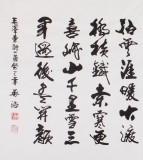 拍雲崖暖大渡
橋橫鐵索寒更
喜岷山千里雪三
軍過後盡開顏
毛澤東詩